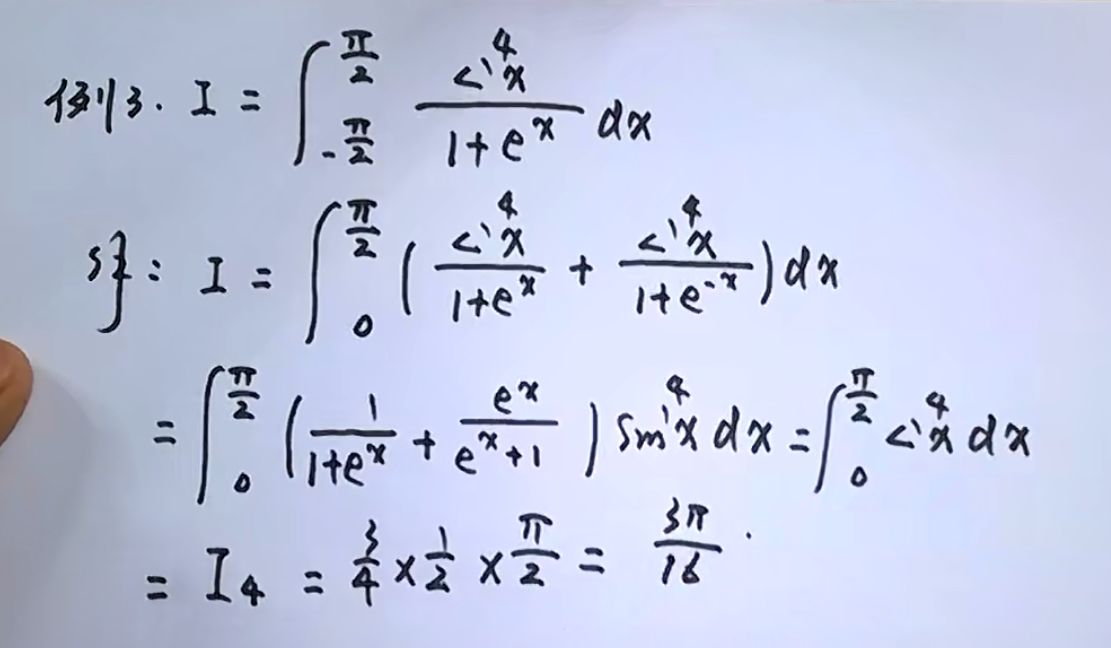 例3. I = ∫_{-π/2}^{π/2} sin⁴x / (1+e^x) dx
解: I = ∫_0^{π/2} ( sin⁴x / (1+e^x) + sin⁴x / (1+e^{-x}) ) dx
= ∫_0^{π/2} ( 1 / (1+e^x) + e^x / (e^x+1) ) sin⁴x dx = ∫_0^{π/2} sin⁴x dx
= I₄ = 3/4 × 1/2 × π/2 = 3π/16 .